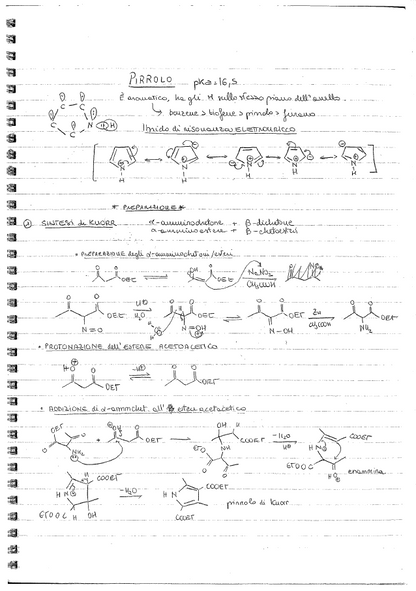 PIRROLO pKa = 16,5
È aromatico, ha gli H sullo stesso piano dell'anello.
↳ benzene > tiofene > pirrolo > furano
Ibrido di risonanza ELETTRONICO
N H
* PREPARAZIONE *
SINTESI di KNORR α-amminochetone + β-dichetone
α-amminoestere + β-chetoesteri
• PREPARAZIONE degli α-amminochetoni/esteri
OEt OEt NaNO₂
CH₃COOH
OEt H₂O OEt OEt Zn OEt
N=O N=OH N-OH CH₃COOH NH₂
• PROTONAZIONE dell'ESTERE ACETOACETICO
HO OEt -H⊕ OEt
• ADDIZIONE di α-ammchet. all' estere acetacetico
OEt OH OEt COOEt -H₂O COOEt
NH₂ EtO NH EtOOC enammina
COOEt -H₂O COOEt
EtOOC OH N H COOEt pirrolo di Knorr